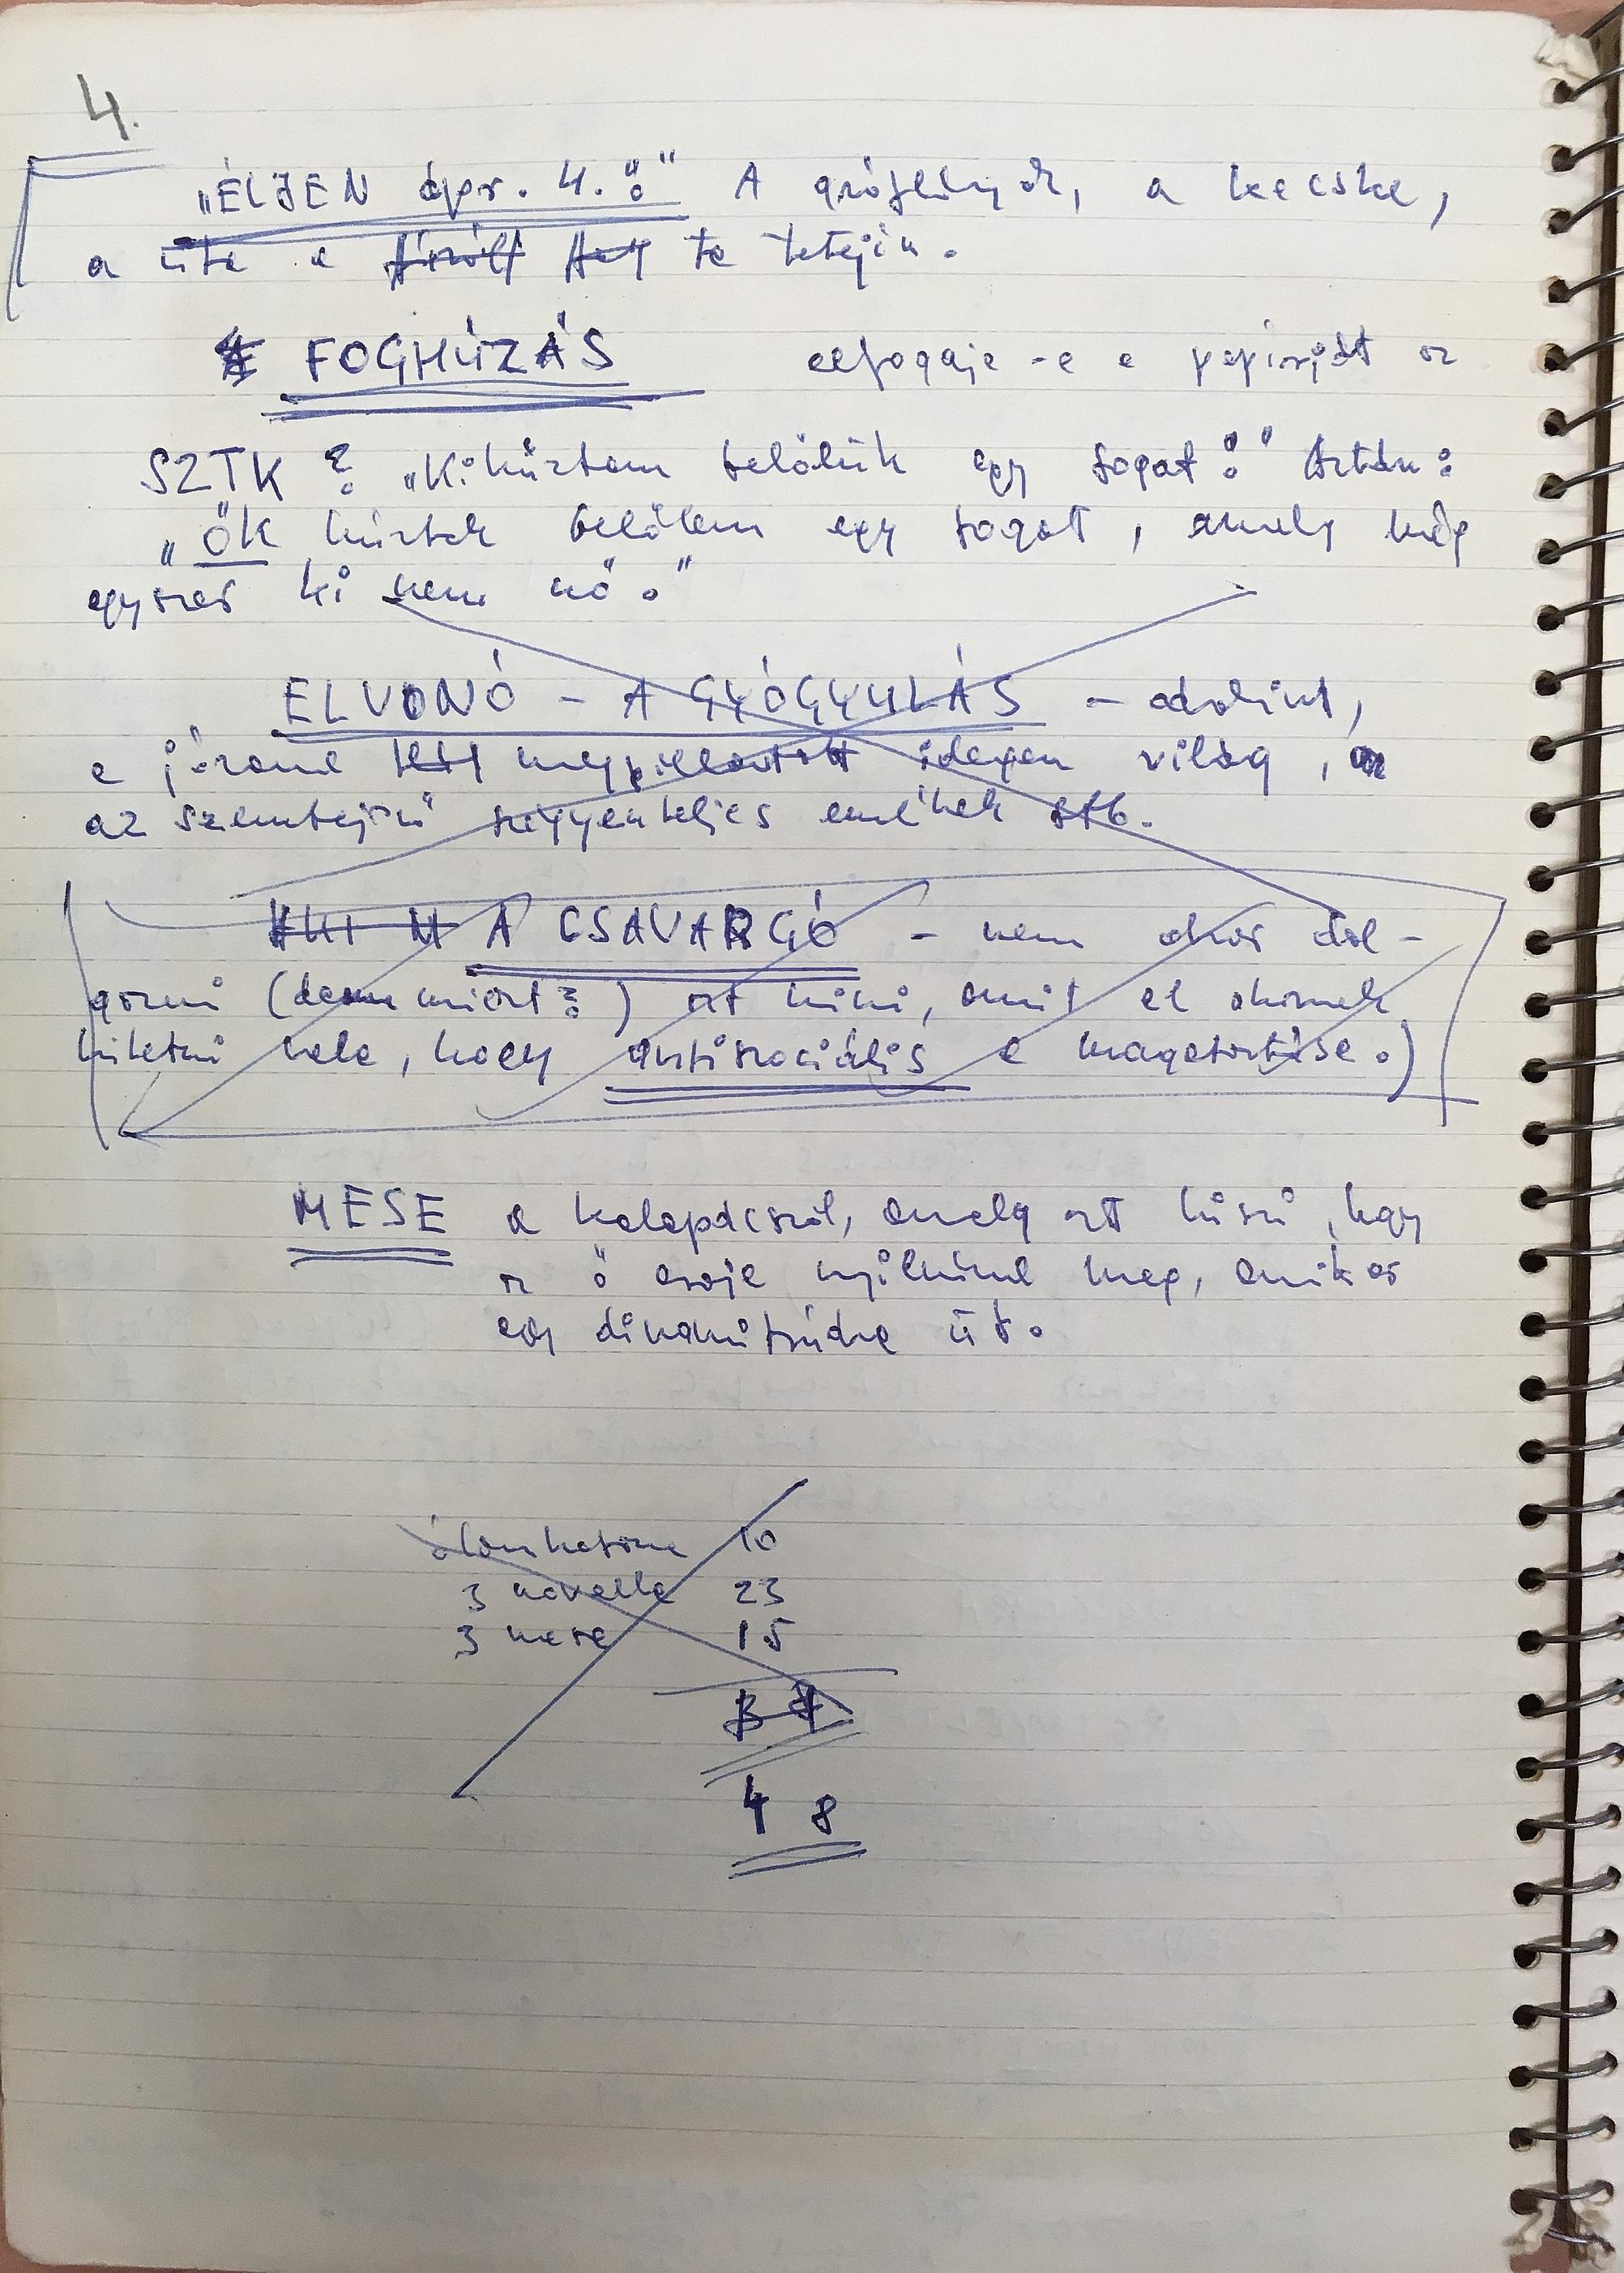 4.
„ÉLJEN ápr. 4.!” A gróflányok, a kecske,
a te tetején.
FOGHÚZÁS elfogadja-e a papírját az
SZTK? „Kihúztam belőlük egy fogat!” Aztán:
„ŐK húztak belőlem egy fogat, amely még
egyszer ki nem nő.”
ELVONÓ – A GYÓGYULÁS – adalint,
a józanul megpillantott idegen világ,
az szemtejű szégyenteljes emlékek stb.
A CSAVARGÓ – nem akar dol-
gozni (de nem miért?) azt hiszi, amit el akarnak
hitetni vele, hogy antiszociális a magatartása.)
MESE a kalapácsról, amely azt hiszi, hogy
az ő esze nyilvánul meg, amikor
egy dinamitrúdra üt.
10
3 novella 23
3 mese 15
48